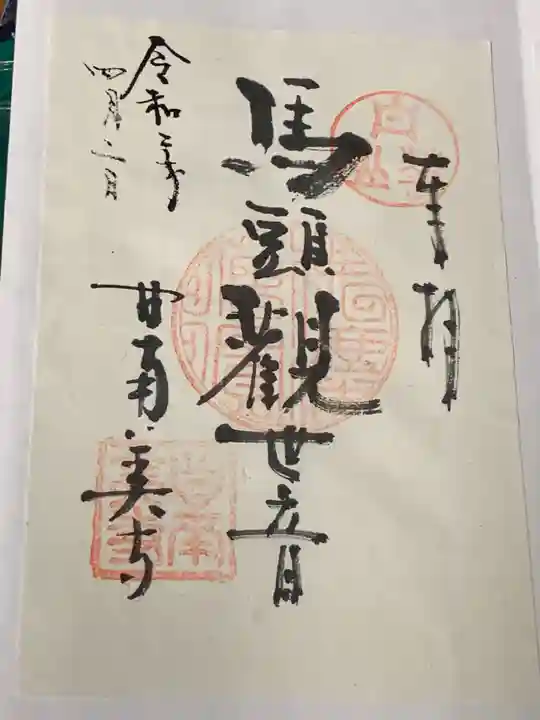 奉拝
馬頭觀世音
甘南美寺
令和三年
四月二日